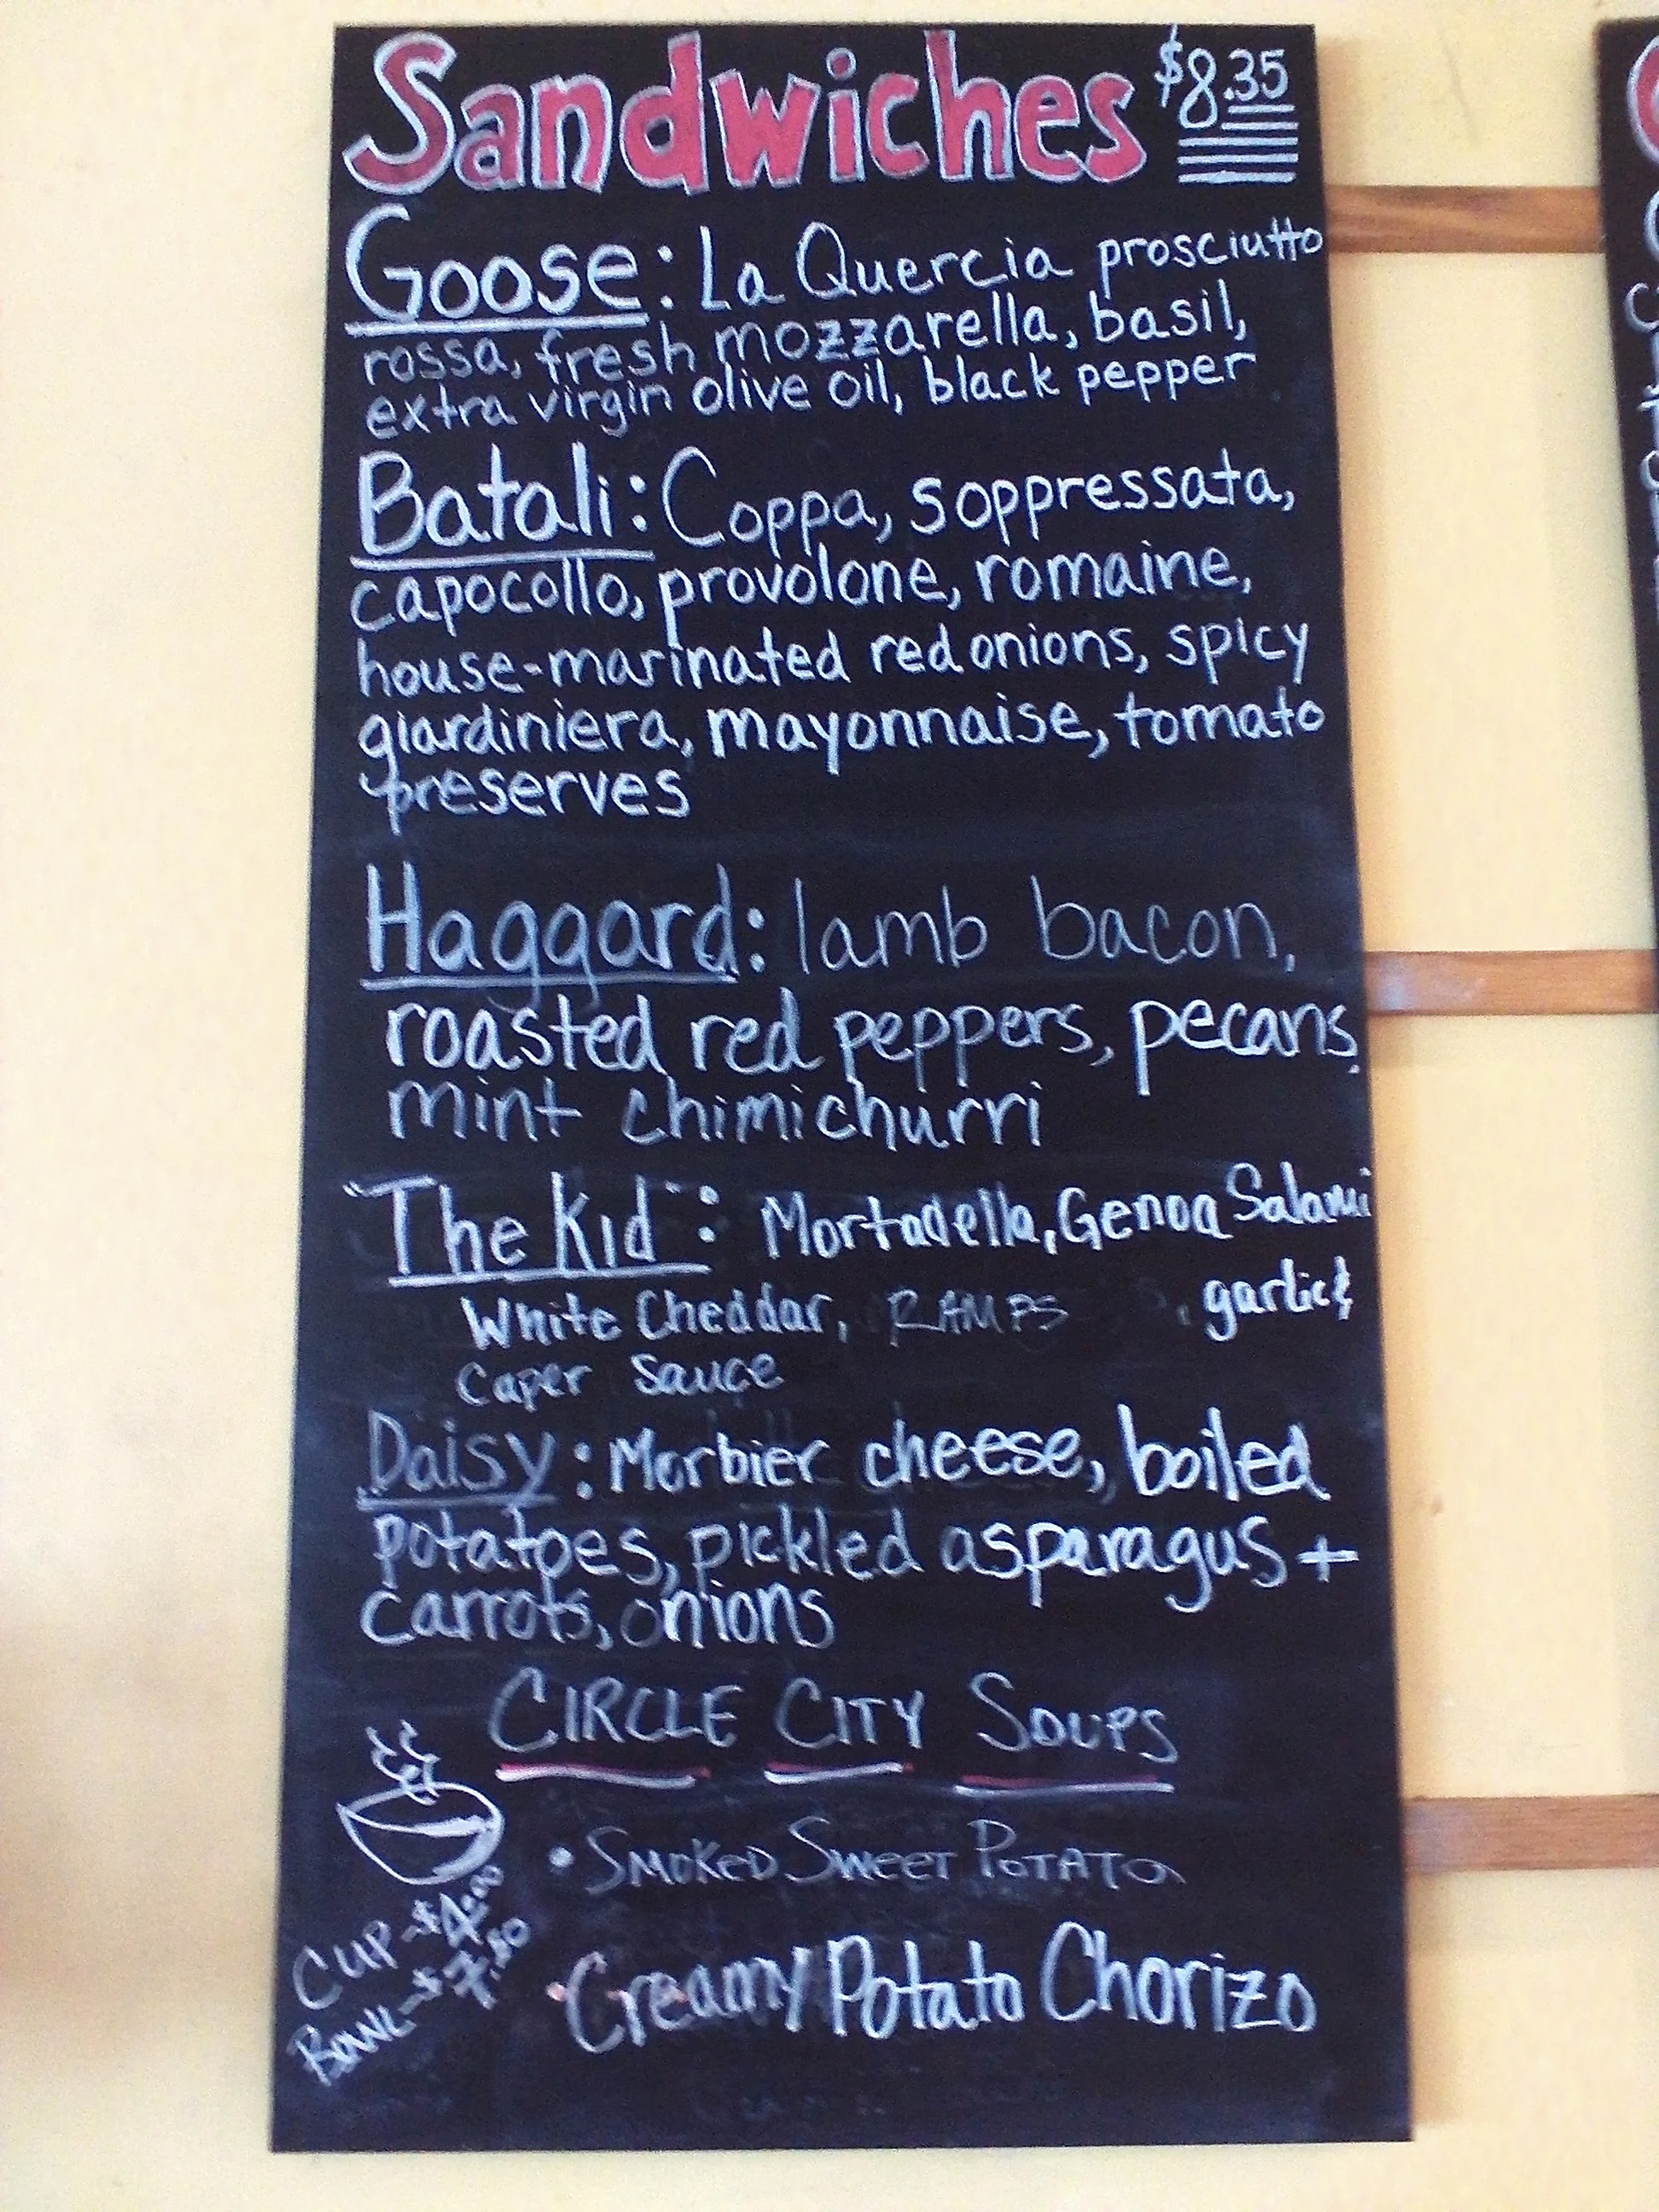 Sandwiches $8.35
Goose: La Quercia prosciutto
rossa, fresh mozzarella, basil,
extra virgin olive oil, black pepper
Batali: Coppa, soppressata,
capocollo, provolone, romaine,
house-marinated red onions, spicy
giardiniera, mayonnaise, tomato
preserves
Haggard: lamb bacon,
roasted red peppers, pecans,
mint chimichurri
"The Kid": Mortadella, Genoa Salami
White Cheddar, RAMPS, garlic &
Caper Sauce
Daisy: Morbier cheese, boiled
potatoes, pickled asparagus +
carrots, onions
CIRCLE CITY SOUPS
• SMOKED SWEET POTATO
CUP - $4.00
BOWL - $7.50
• Creamy Potato Chorizo